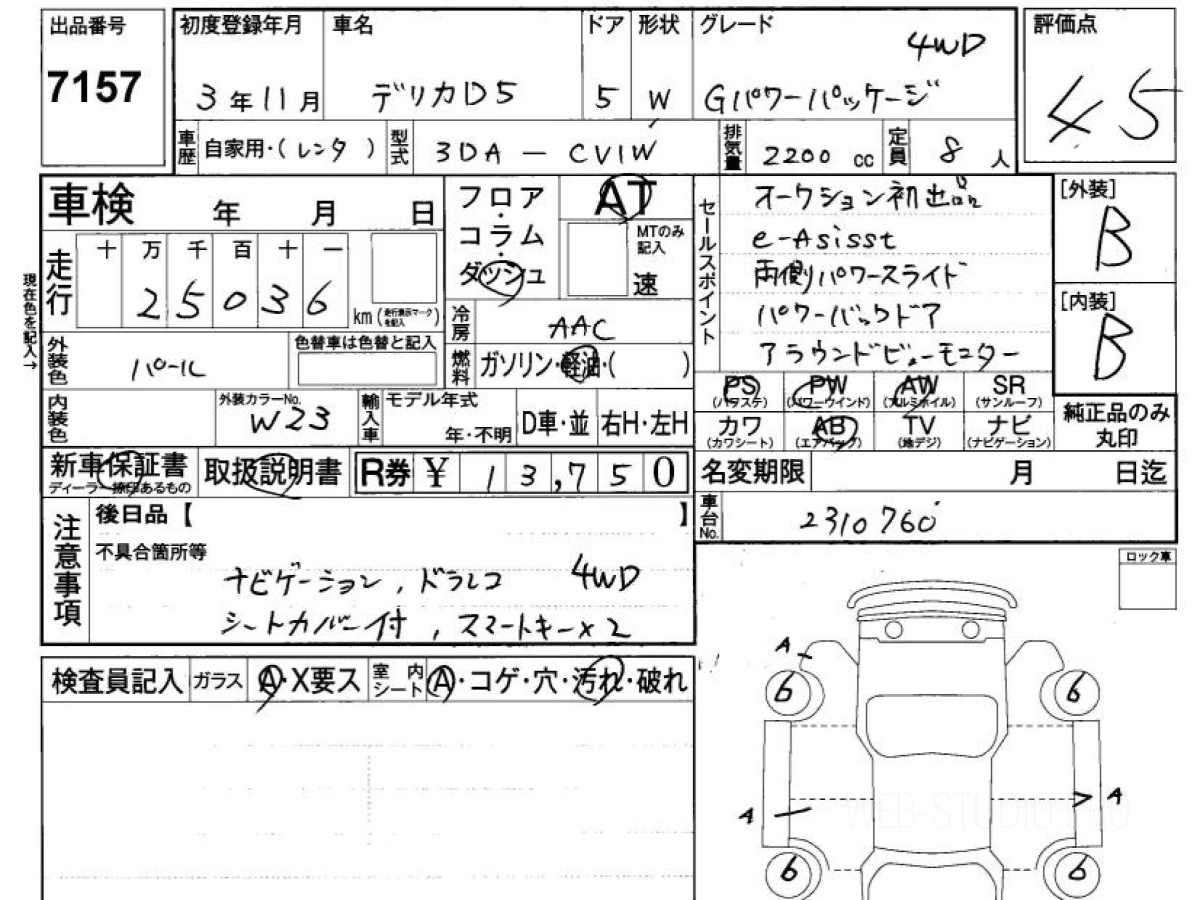 出品番号
7157
初度登録年月
3年11月
車名
デリカD5
ドア
5
形状
W
グレード
4WD
Gパワーパッケージ
評価点
4 5
車歴
自家用・(レンタ)
型式
3DA-CV1W
排気量
2200 cc
定員
8人
車検 年 月 日
走行
十 万 千 百 十 一
2 5 0 3 6
km(走行表示マークを記入)
現在色を記入→
外装色
パール
色替車は色替と記入
内装色
外装カラーNo.
W23
輸入車
モデル年式
年・不明
D車・並
右H・左H
フロア・コラム・ダッシュ
AT
MTのみ記入
速
冷房
AAC
燃料
ガソリン・軽油・( )
セールスポイント
オークション初出品
e-Asisst
両側パワースライド
パワーバックドア
アラウンドビューモニター
PS (パワステ)
PW (パワーウインド)
AW (アルミホイル)
SR (サンルーフ)
カワ (カワシート)
AB (エアバック)
TV (地デジ)
ナビ (ナビゲーション)
[外装]
B
[内装]
B
純正品のみ丸印
新車保証書
ディーラー捺印あるもの
取扱説明書
R券 ¥ 13,750
名変期限 月 日迄
車台No.
2310760
注意事項
後日品【 】
不具合箇所等
ナビゲーション, ドラレコ 4WD
シートカバー付, スマートキー×2
ロック車
検査員記入
ガラス
A・X要ス
室内シート
A・コゲ・穴・汚れ・破れ
A
6
6
A
A
6
6
WEB-STUDIO.PRO